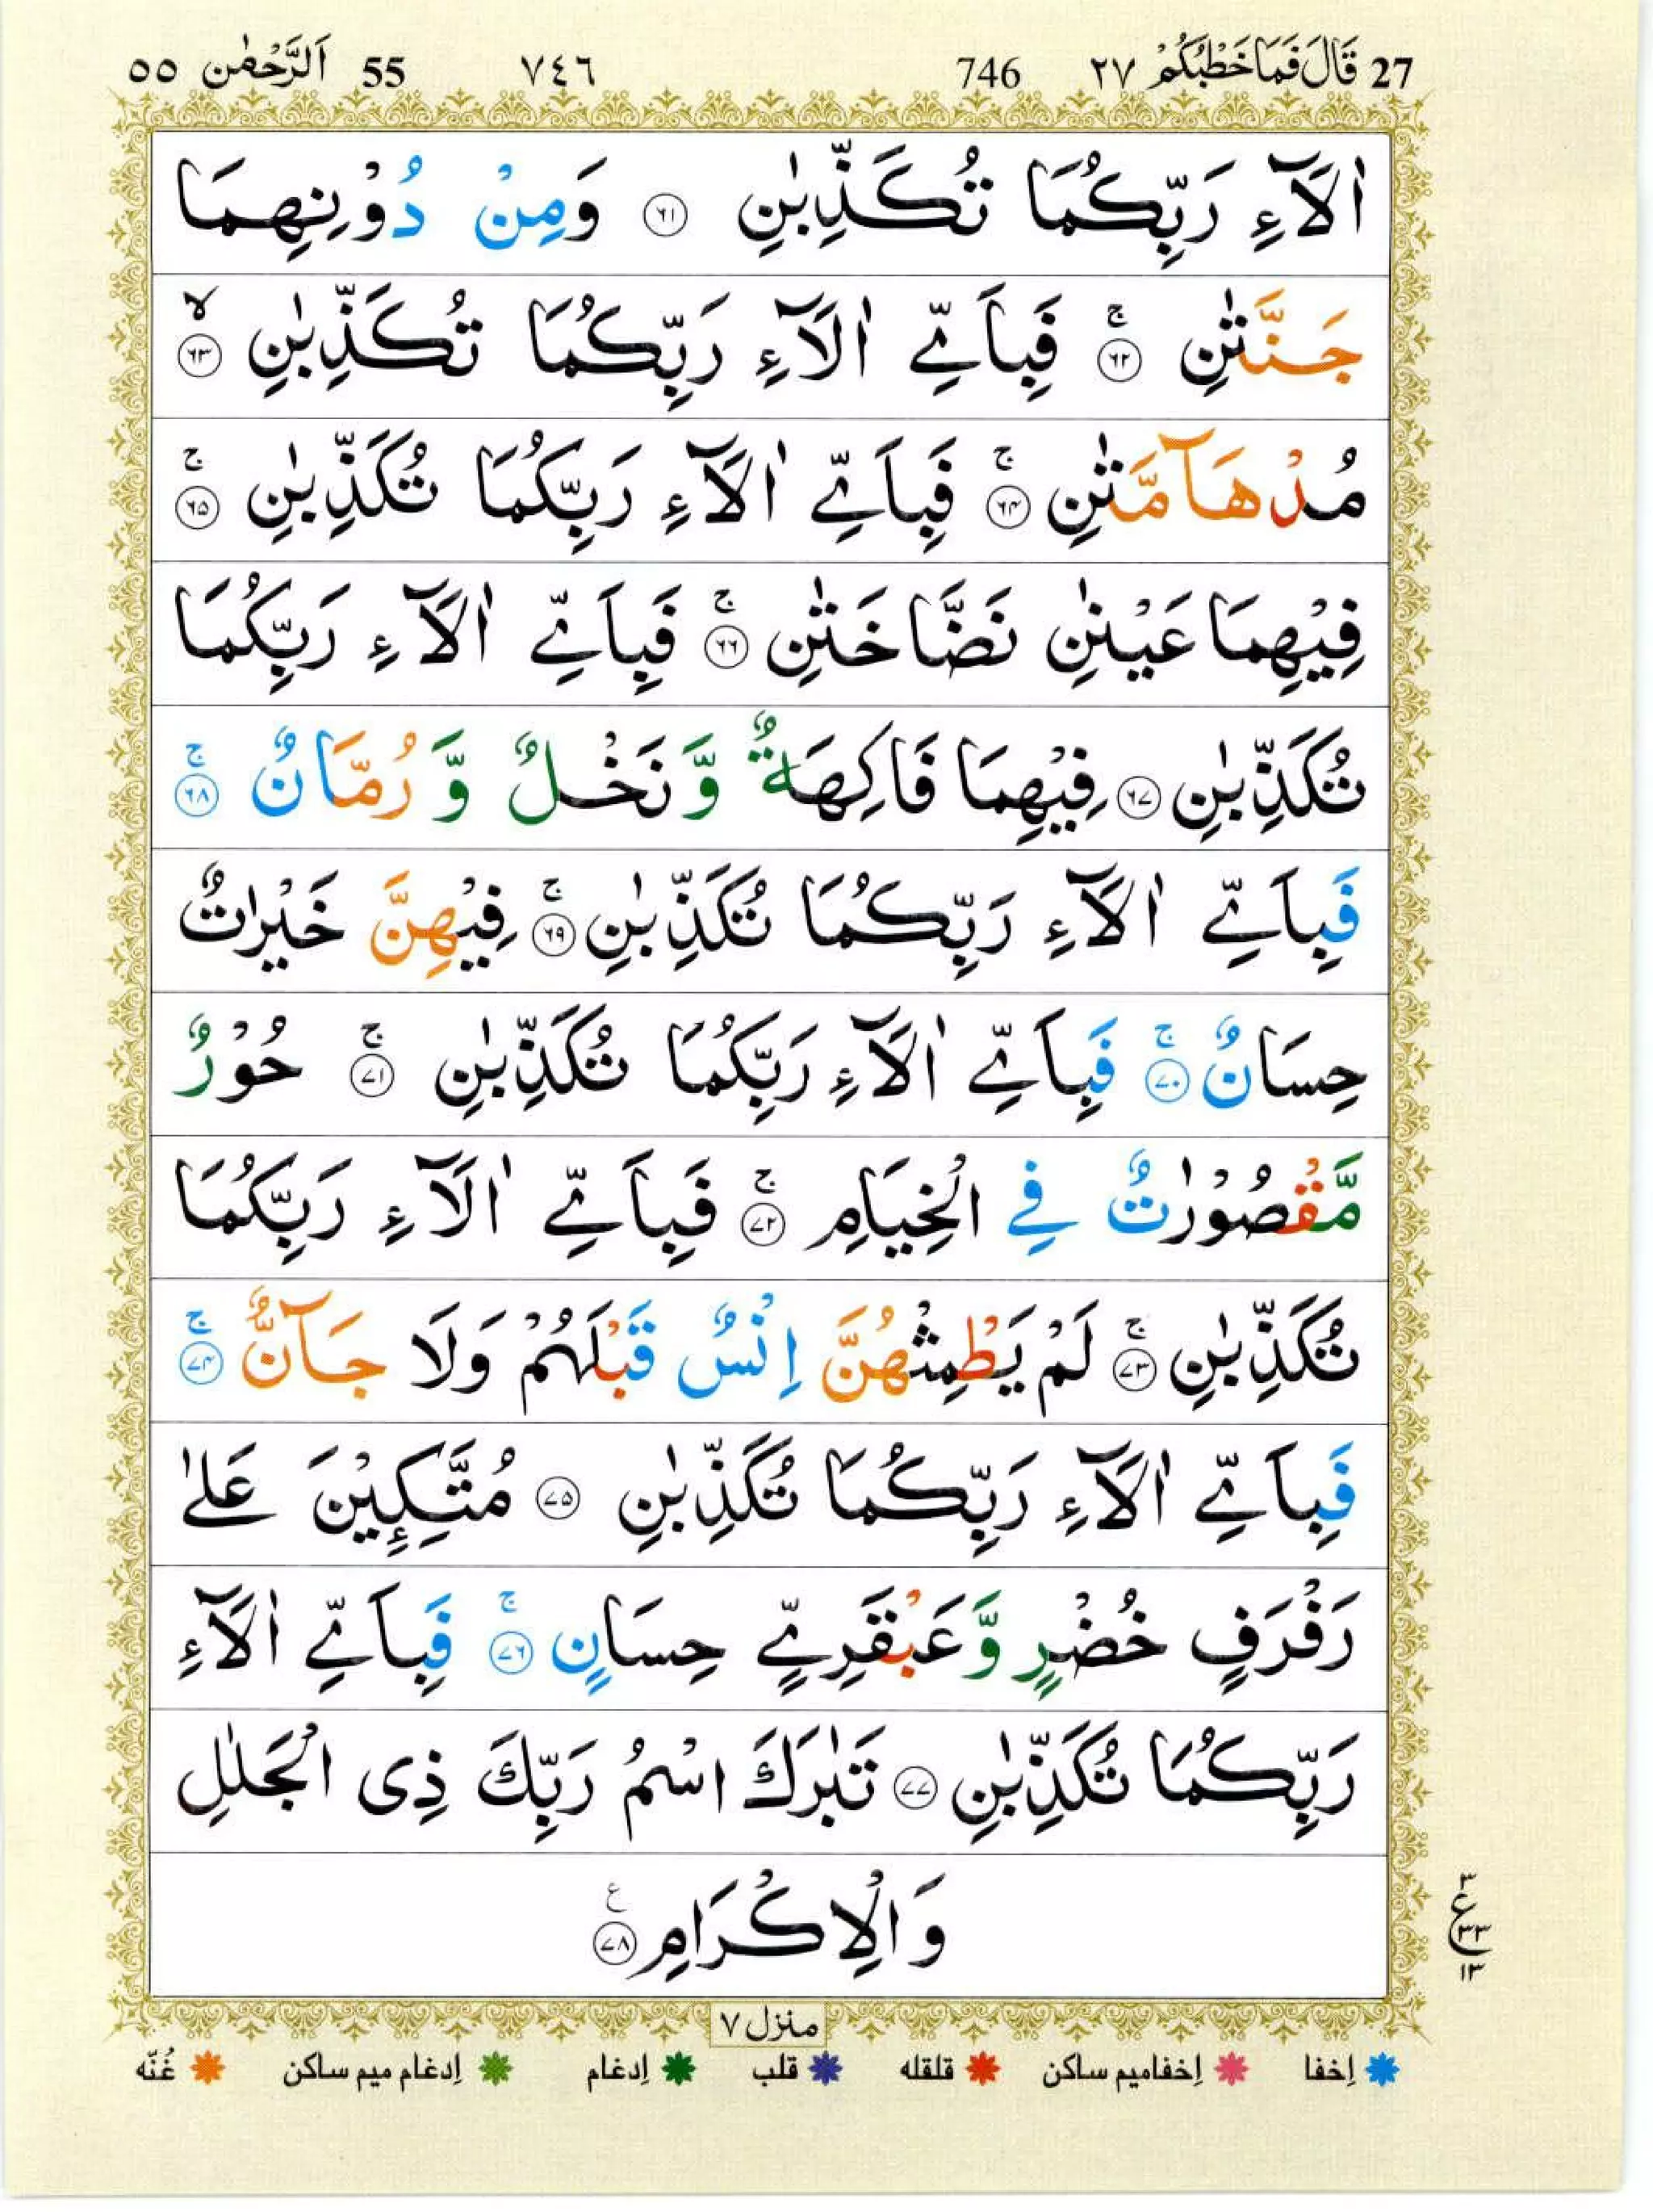 27 قَالَ فَمَا خَطْبُكُمْ ٢٧ 746 ٧٤٦ 55 اَلرَّحْمٰن ٥٥
اٰلَآءِ رَبِّكُمَا تُكَذِّبٰنِ ۶۱ وَمِنْ دُوْنِهِمَا
جَنَّتٰنِ ۚ ۶۲ فَبِاَيِّ اٰلَآءِ رَبِّكُمَا تُكَذِّبٰنِ ۙ ۶۳
مُدْهَآمَّتٰنِ ۚ ۶۴ فَبِاَيِّ اٰلَآءِ رَبِّكُمَا تُكَذِّبٰنِ ۚ ۶۵
فِيْهِمَا عَيْنٰنِ نَضَّاخَتٰنِ ۚ ۶۶ فَبِاَيِّ اٰلَآءِ رَبِّكُمَا
تُكَذِّبٰنِ ۶۷ فِيْهِمَا فَاكِهَةٌ وَّنَخْلٌ وَّرُمَّانٌ ۚ ۶۸
فَبِاَيِّ اٰلَآءِ رَبِّكُمَا تُكَذِّبٰنِ ۚ ۶۹ فِيْهِنَّ خَيْرٰتٌ
حِسَانٌ ۚ ۷۰ فَبِاَيِّ اٰلَآءِ رَبِّكُمَا تُكَذِّبٰنِ ۚ ۷۱ حُوْرٌ
مَّقْصُوْرٰتٌ فِي الْخِيَامِ ۚ ۷۲ فَبِاَيِّ اٰلَآءِ رَبِّكُمَا
تُكَذِّبٰنِ ۚ ۷۳ لَمْ يَطْمِثْهُنَّ اِنْسٌ قَبْلَهُمْ وَلَا جَآنٌّ ۚ ۷۴
فَبِاَيِّ اٰلَآءِ رَبِّكُمَا تُكَذِّبٰنِ ۷۵ مُتَّكِـِٕيْنَ عَلٰى
رَفْرَفٍ خُضْرٍ وَّعَبْقَرِيٍّ حِسَانٍ ۚ ۷۶ فَبِاَيِّ اٰلَآءِ
رَبِّكُمَا تُكَذِّبٰنِ ۷۷ تَبٰرَكَ اسْمُ رَبِّكَ ذِى الْجَلٰلِ
وَالْاِكْرَامِ ۷۸ ع
٣
ع ٣٣
١٣
منزل ٧
اِخفا اِخفامیم ساکن قلقله قلب اِدغام اِدغام میم ساکن غُنّه